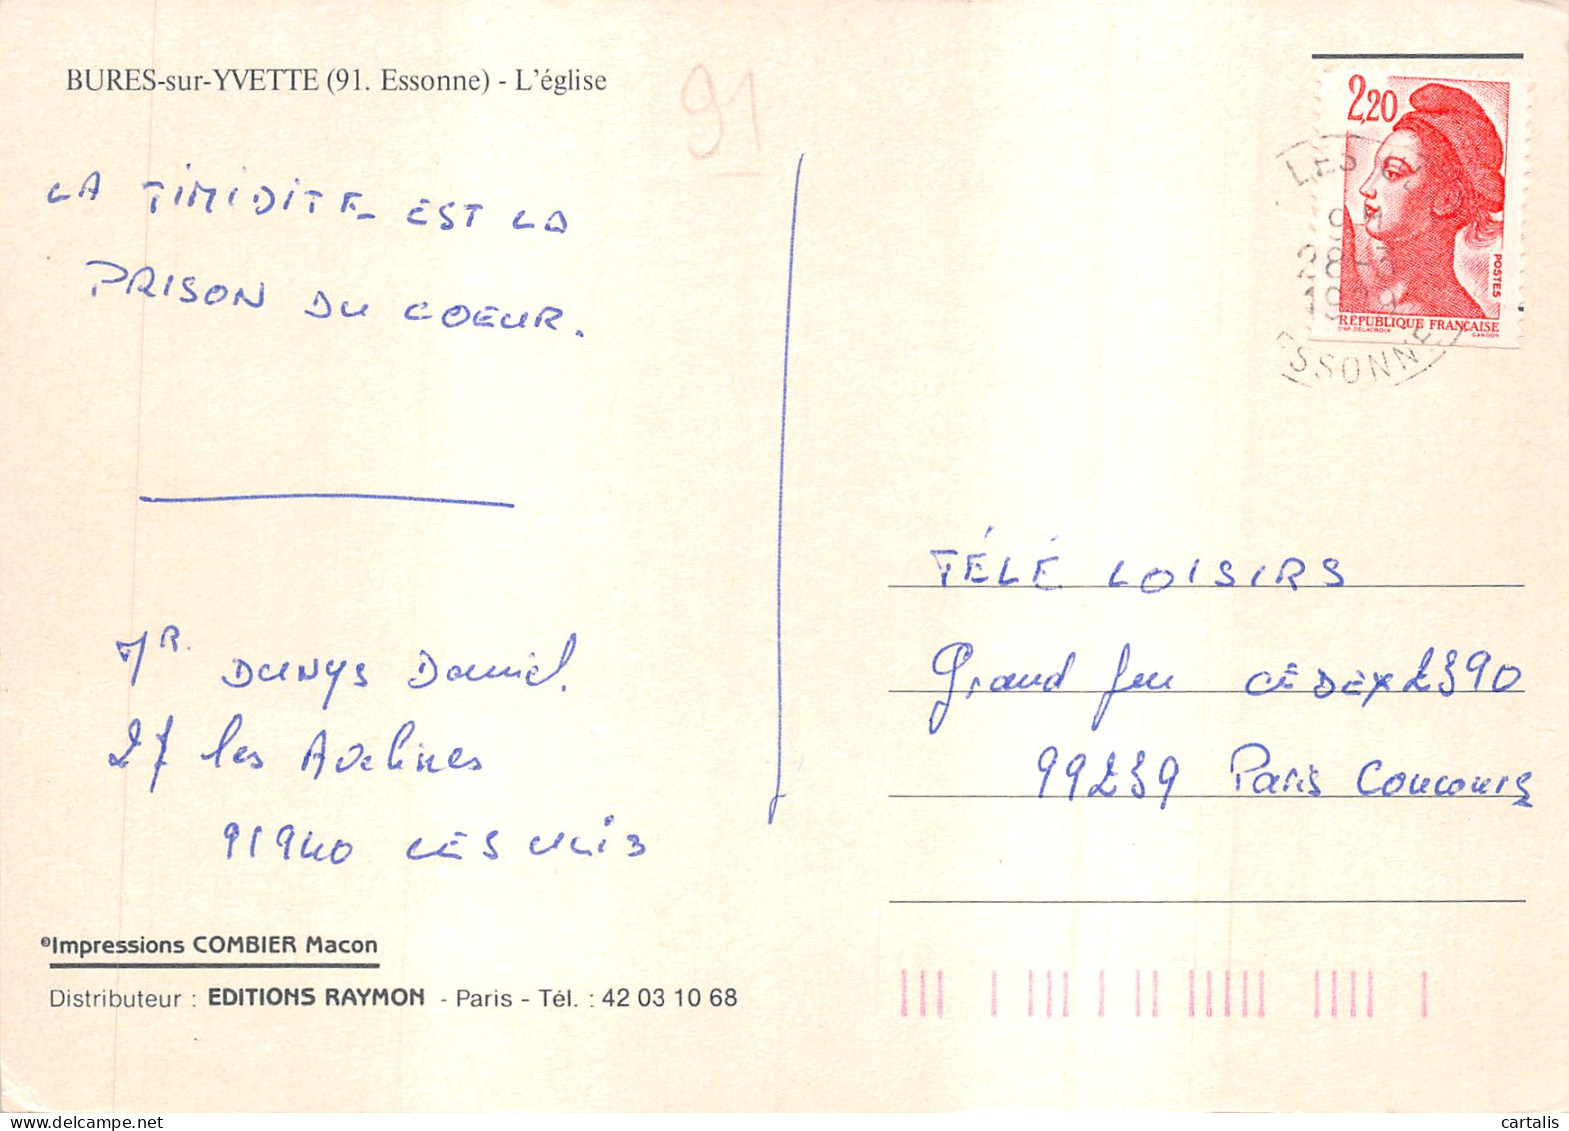 BURES-sur-YVETTE (91. Essonne) - L'église
91
LA TIMIDITE EST LA
PRISON DU COEUR.
Mr. DUNYS Daniel.
27 les Avelines
91940 LES ULIS
©Impressions COMBIER Macon
Distributeur : EDITIONS RAYMON - Paris - Tél. : 42 03 10 68
2,20
POSTES
RÉPUBLIQUE FRANÇAISE
D'AP. DELACROIX GANDON
LES
28-3
ESSONNE
TÉLÉ LOISIRS
Grand Jeu CÉDEX 2390
99239 Paris Concours
cartalis